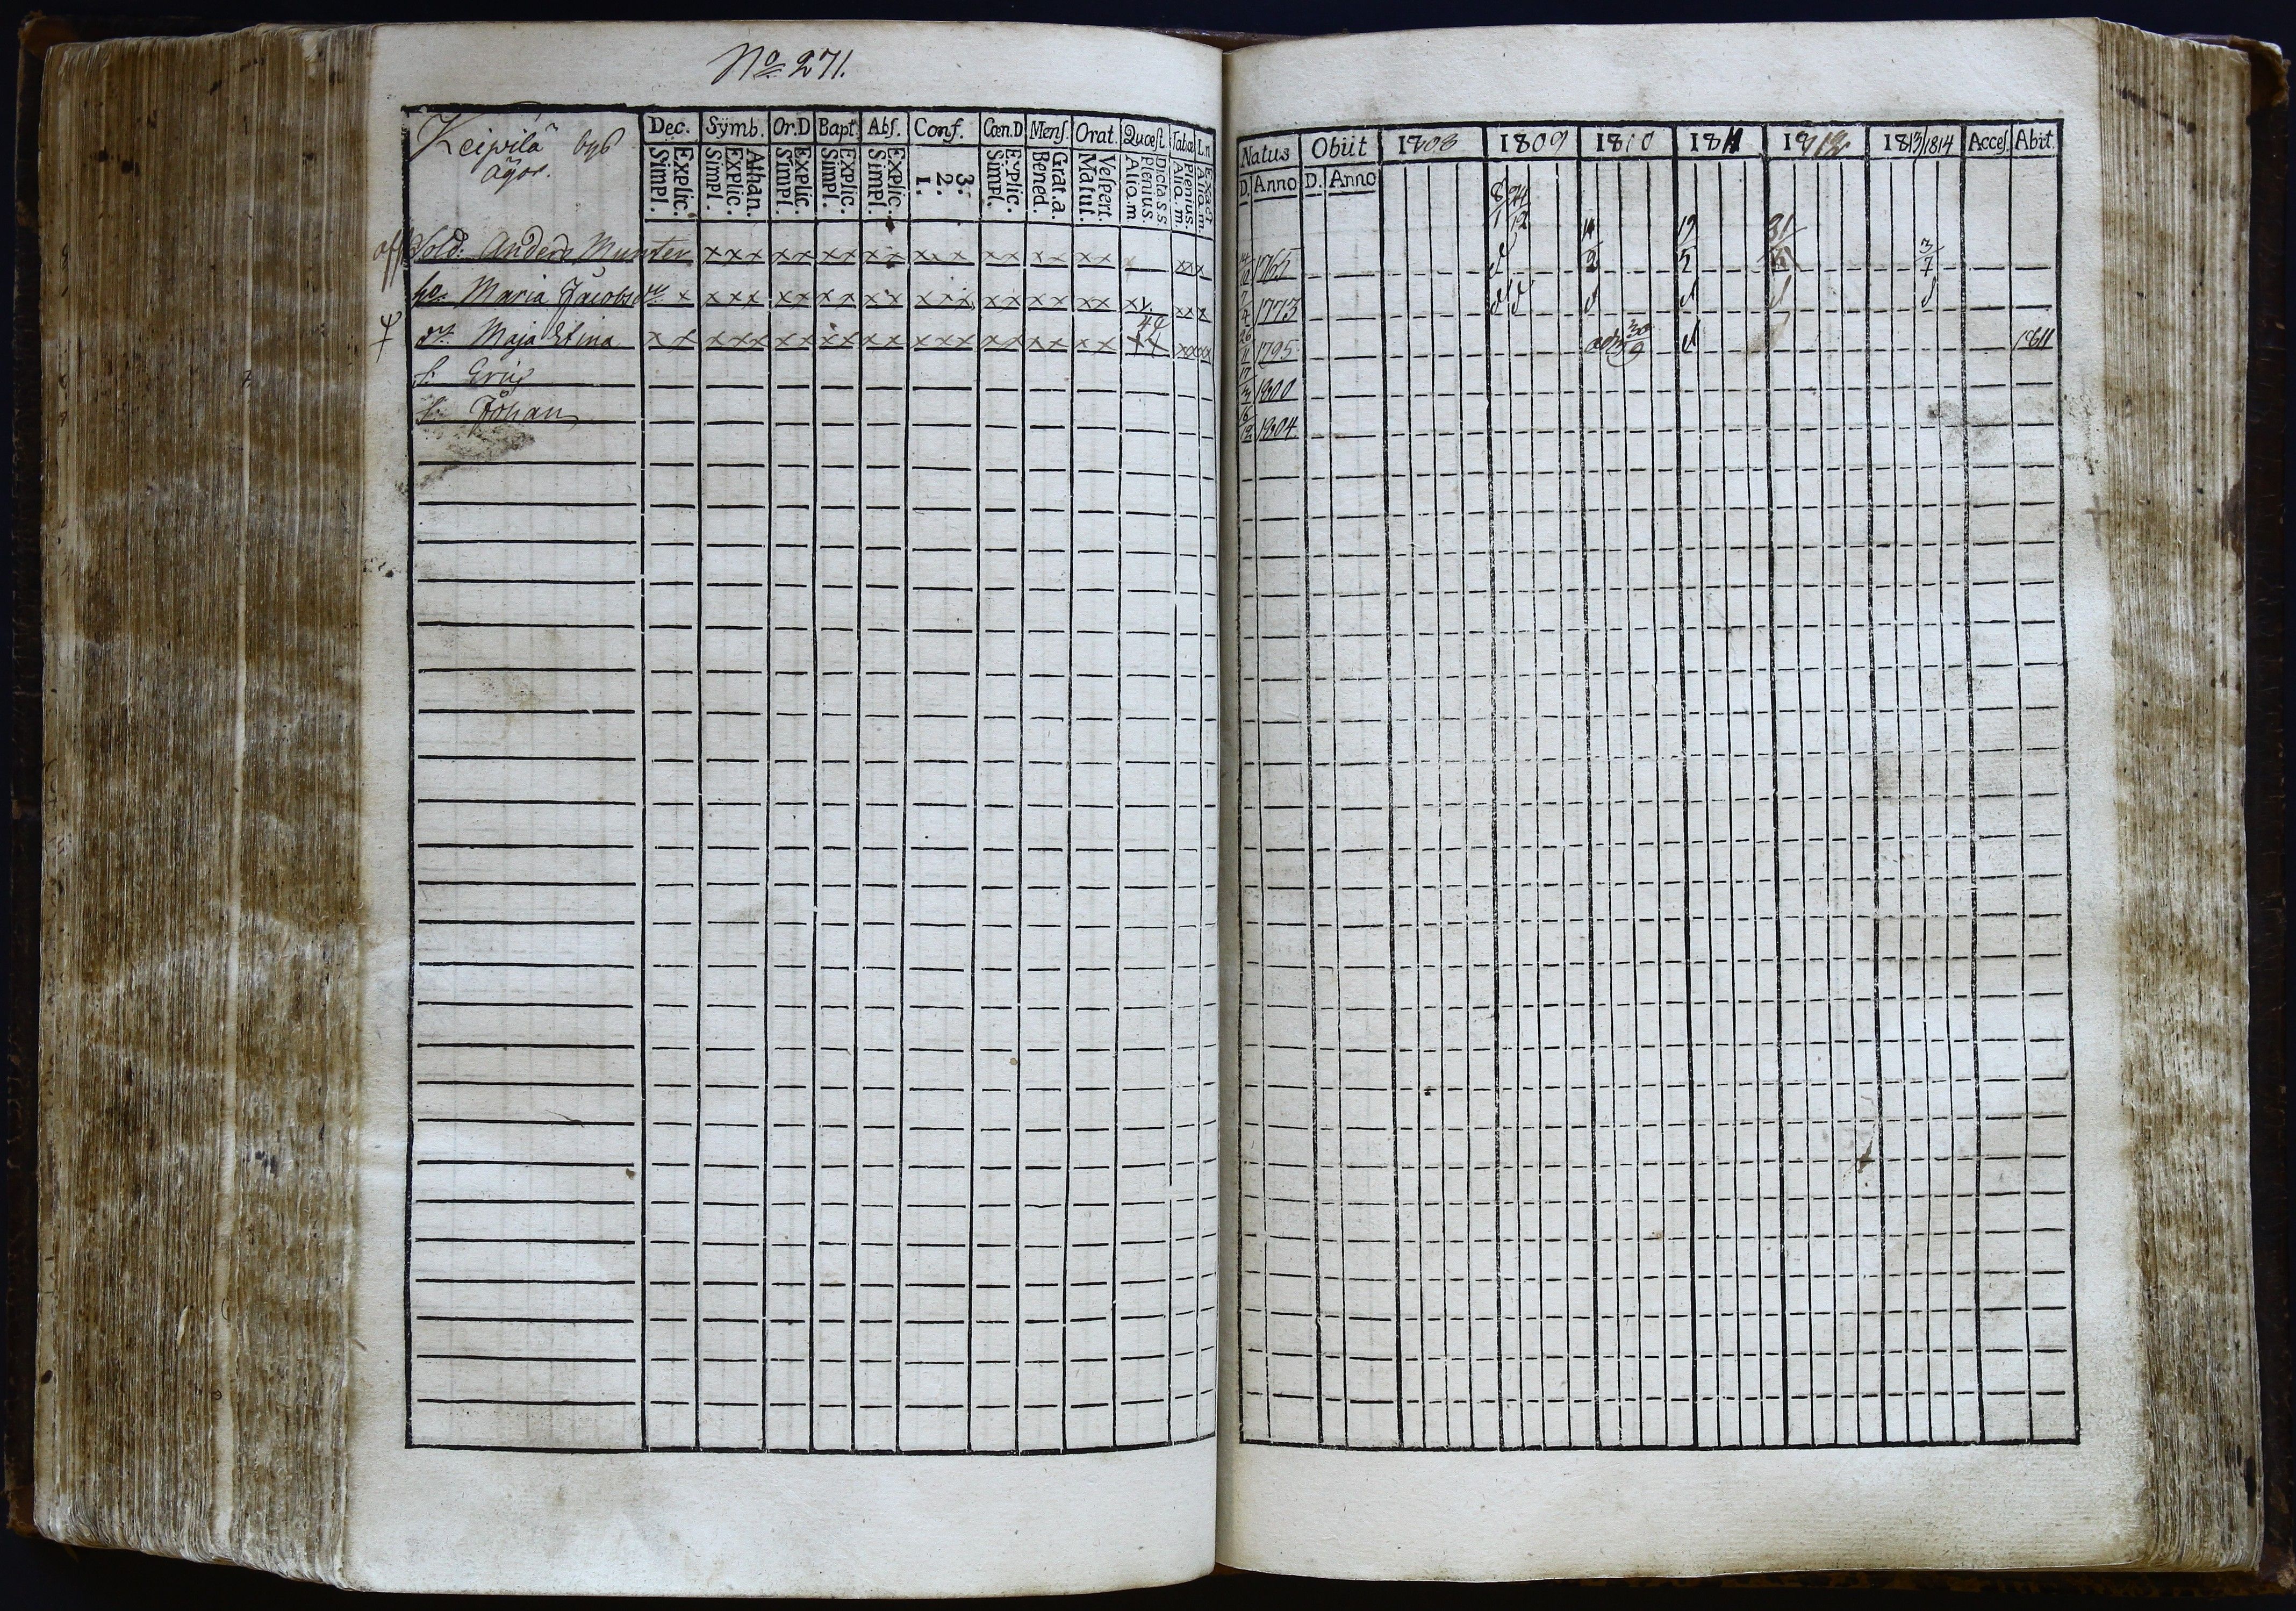 No 271.
Keipilä bys
ägor.
Dec. Symb. Or.D Bapt. Abs. Conf. Cœn.D Mens. Orat. Quæst. Tabæ L.n
Explic. Simpl. Athan. Explic. Simpl. Explic. Simpl. Explic. Simpl. Explic. Simpl. 3. 2. 1. Explic. Simpl. Grat.a. Bened. Vespert. Matut. Dicta s.s. Plenius. Aliq.m Plenius. Aliq.m. Exact Aliq.m.
Sold. Anders Munter xxx xx xx xx xxx xx xx xx xxx
hu. Maria Jacobsdr x xxx xx xx xx xxx xx xx xx xx xxx
dr Maja Stina xx xxx xx xx xx xxx xx xx xx xxxx
s. Eric
s. Johan
Natus Obiit 1808 1809 1810 1811 1812 1813/1814 Acces. Abit.
D. Anno D. Anno
8/1 24/12
1765 3/7
7/4 1773
26/11 1795 adm 30/9 1811
17/3 1800
6/12 1804